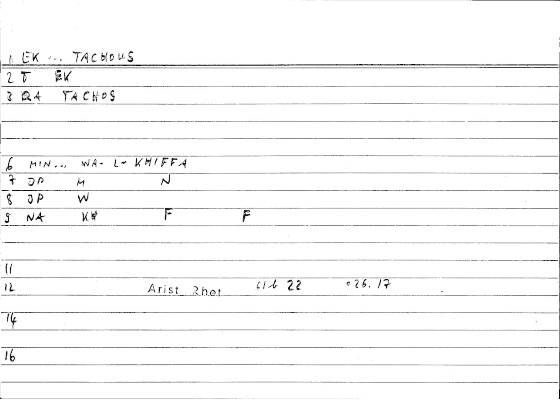 1 EK ... TACHOUS
2 T EK
3 QA TACHOS
6 MIN... WA- L- KHIFFA
7 JP M N
8 JP W
9 NA KH F F
11
12 Arist Rhet 61b 22 026.17
14
16